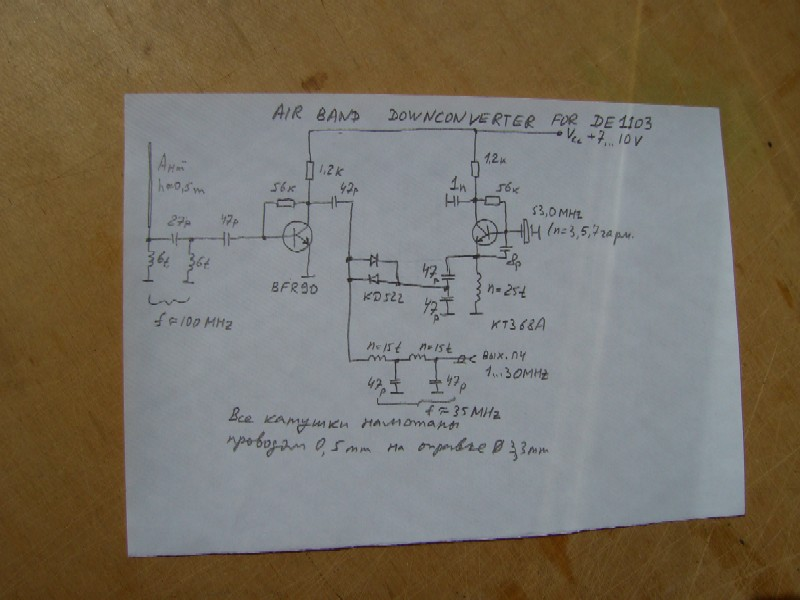 AIR BAND DOWNCONVERTER FOR DE1103
Vcc +7...10V
Ант
h=0,5m
27p
47p
6t
6t
f≈100MHz
56k
1,2k
47p
BFR90
KD522
1,2k
1n
56k
53,0MHz
(n=3,5,7 гарм.
8p
47p
47p
n=25t
KT368A
n=15t
n=15t
вых. ПЧ
1...30MHz
47p
47p
f≈35MHz
Все катушки намотаны
проводом 0,5mm на оправке Ø 3,3mm